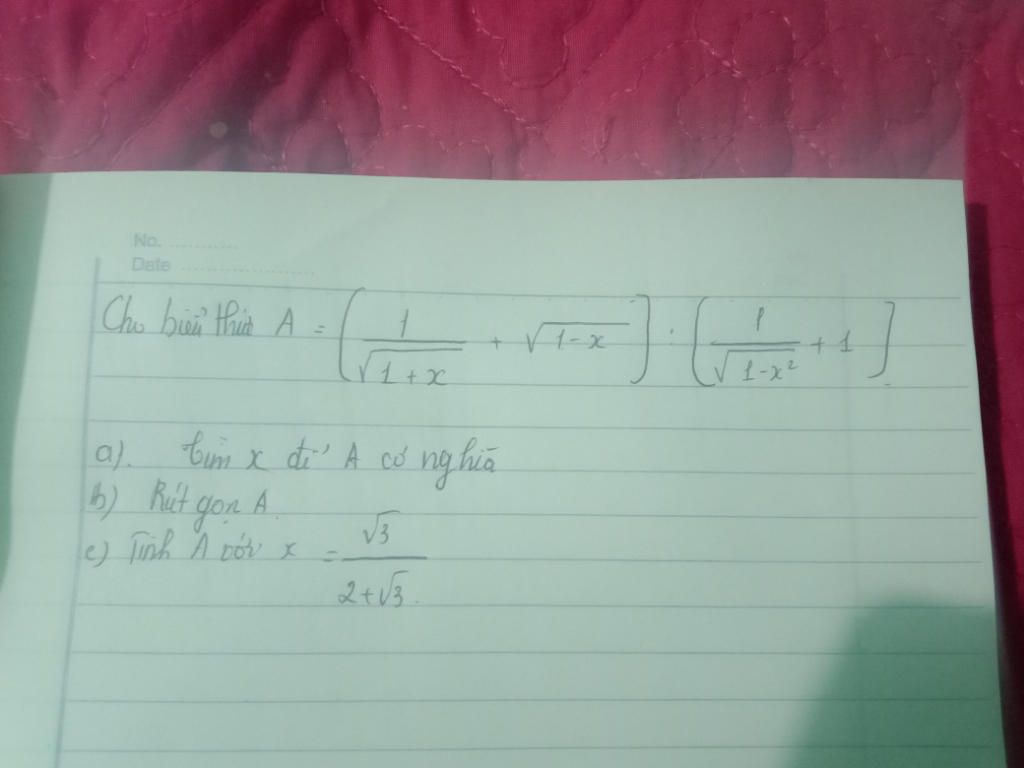 No. ............
Date ........................
Cho biểu thức A = [ 1/√(1+x) + √(1-x) ] : [ 1/√(1-x²) + 1 ]
a). tìm x để A có nghĩa
b) Rút gọn A.
c) Tính A với x = √3/(2+√3).